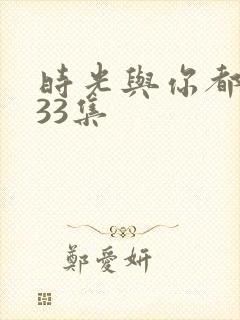 時光與你都
33集
鄭愛妍